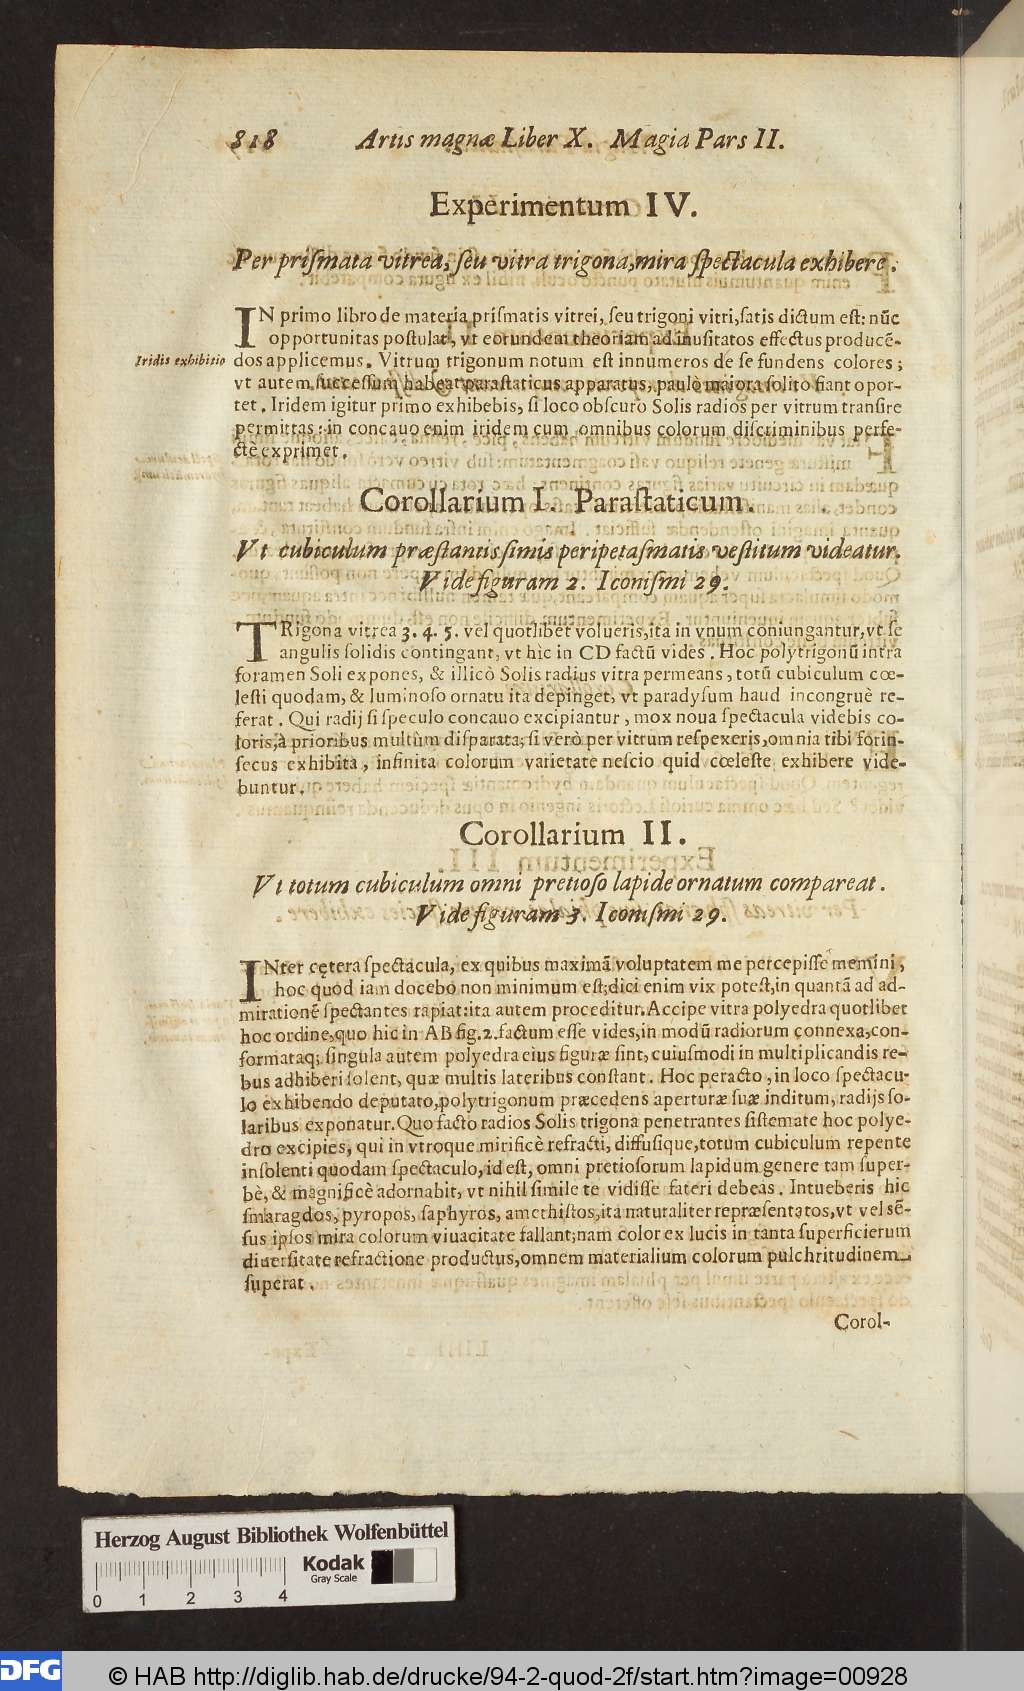 818 Artis magnæ Liber X. Magia Pars II.
Experimentum IV.
Per priſmata vitrea, ſeu vitra trigona, mira ſpectacula exhibere.
IN primo libro de materia priſmatis vitrei, ſeu trigoni vitri, ſatis dictum eſt: nūc
opportunitas poſtulat, vt eorundem theoriam ad inuſitatos effectus producē-
Iridis exhibitio
dos applicemus. Vitrum trigonum notum eſt innumeros de ſe fundens colores;
vt autem ſucceſſum habeat paraſtaticus apparatus, paulò maiora ſolito fiant opor-
tet. Iridem igitur primo exhibebis, ſi loco obſcuro Solis radios per vitrum tranſire
permittas: in concauo enim iridem cum omnibus colorum diſcriminibus perfe-
ctè exprimet.
Corollarium I. Paraſtaticum.
Vt cubiculum præſtantiſſimis peripetaſmatis veſtitum videatur.
Vide figuram 2. Iconiſmi 29.
TRigona vitrea 3. 4. 5. vel quotlibet volueris, ita in vnum coniungantur, vt ſe
angulis ſolidis contingant, vt hìc in CD factū vides. Hoc polytrigonū intra
foramen Soli expones, & illicò Solis radius vitra permeans, totū cubiculum cœ-
leſti quodam, & luminoſo ornatu ita depinget, vt paradyſum haud incongruè re-
ferat. Qui radij ſi ſpeculo concauo excipiantur, mox noua ſpectacula videbis co-
loris, à prioribus multùm diſparata; ſi verò per vitrum reſpexeris, omnia tibi forin-
ſecus exhibita, infinita colorum varietate neſcio quid cœleſte exhibere vide-
buntur.
Corollarium II.
Vt totum cubiculum omni pretioſo lapide ornatum compareat.
Vide figuram 3. Iconiſmi 29.
INter cętera ſpectacula, ex quibus maximā voluptatem me percepiſſe memini,
hoc quod iam docebo non minimum eſt; dici enim vix poteſt, in quantā ad ad-
mirationē ſpectantes rapiat: ita autem proceditur. Accipe vitra polyedra quotlibet
hoc ordine, quo hic in AB fig. 2. factum eſſe vides, in modū radiorum connexa, con-
formataq; ſingula autem polyedra eius figuræ ſint, cuiuſmodi in multiplicandis re-
bus adhiberi ſolent, quæ multis lateribus conſtant. Hoc peracto, in loco ſpectacu-
lo exhibendo deputato, polytrigonum præcedens aperturæ ſuæ inditum, radijs ſo-
laribus exponatur. Quo facto radios Solis trigona penetrantes ſiſtemate hoc polye-
dro excipies, qui in vtroque mirificè refracti, diffuſique, totum cubiculum repente
inſolenti quodam ſpectaculo, id eſt, omni pretioſorum lapidum genere tam ſuper-
bè, & magnificè adornabit, vt nihil ſimile te vidiſſe fateri debeas. Intueberis hic
ſmaragdos, pyropos, ſaphyros, amethiſtos, ita naturaliter repræſentatos, vt vel sē-
ſus ipſos mira colorum viuacitate fallant; nam color ex lucis in tanta ſuperficierum
diuerſitate refractione productus, omnem materialium colorum pulchritudinem
ſuperat.
Corol-
Herzog August Bibliothek Wolfenbüttel
Kodak
Gray Scale
0 1 2 3 4
DFG © HAB http://diglib.hab.de/drucke/94-2-quod-2f/start.htm?image=00928